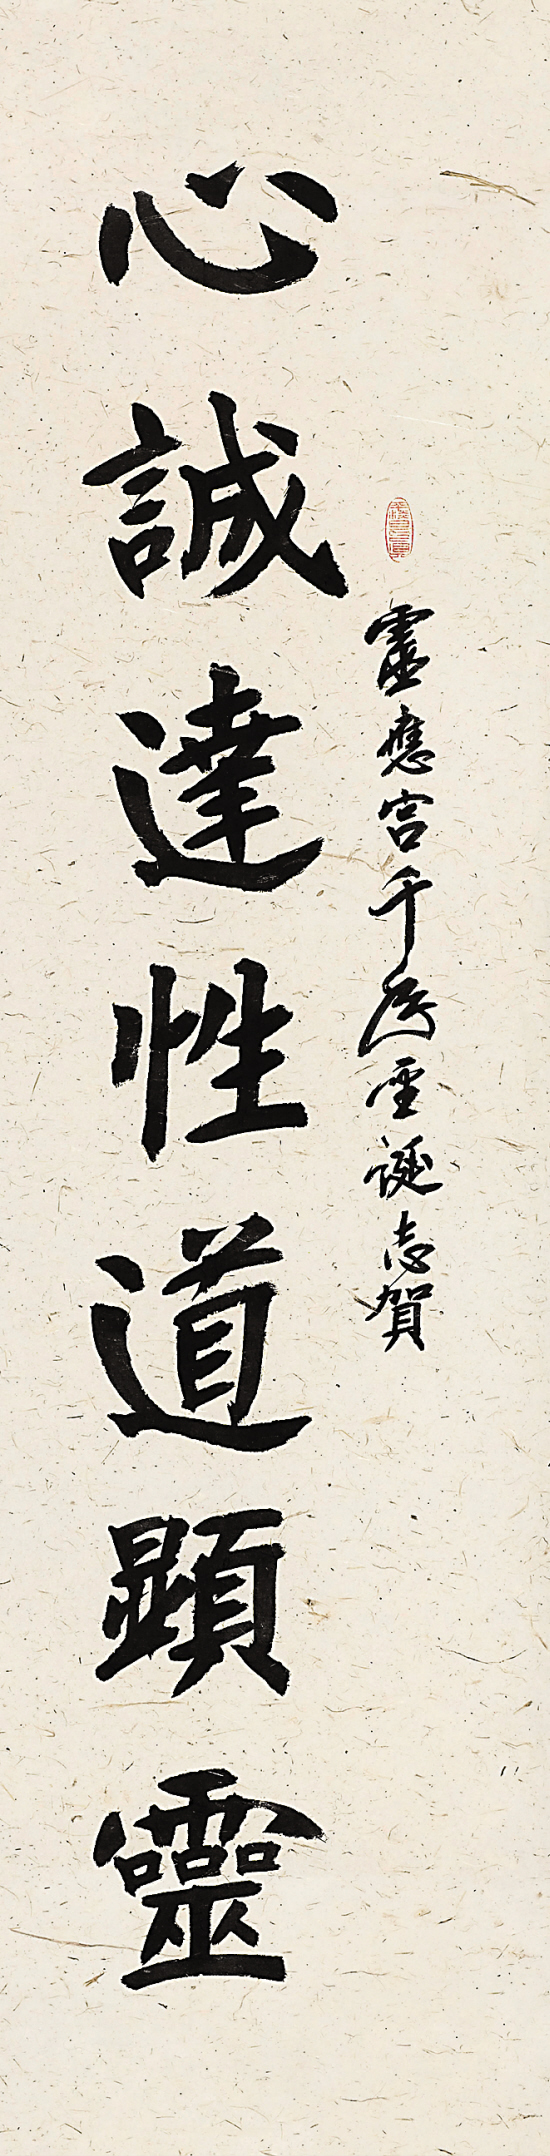 靈應宮千歲聖誕志賀
心誠達性道顯靈